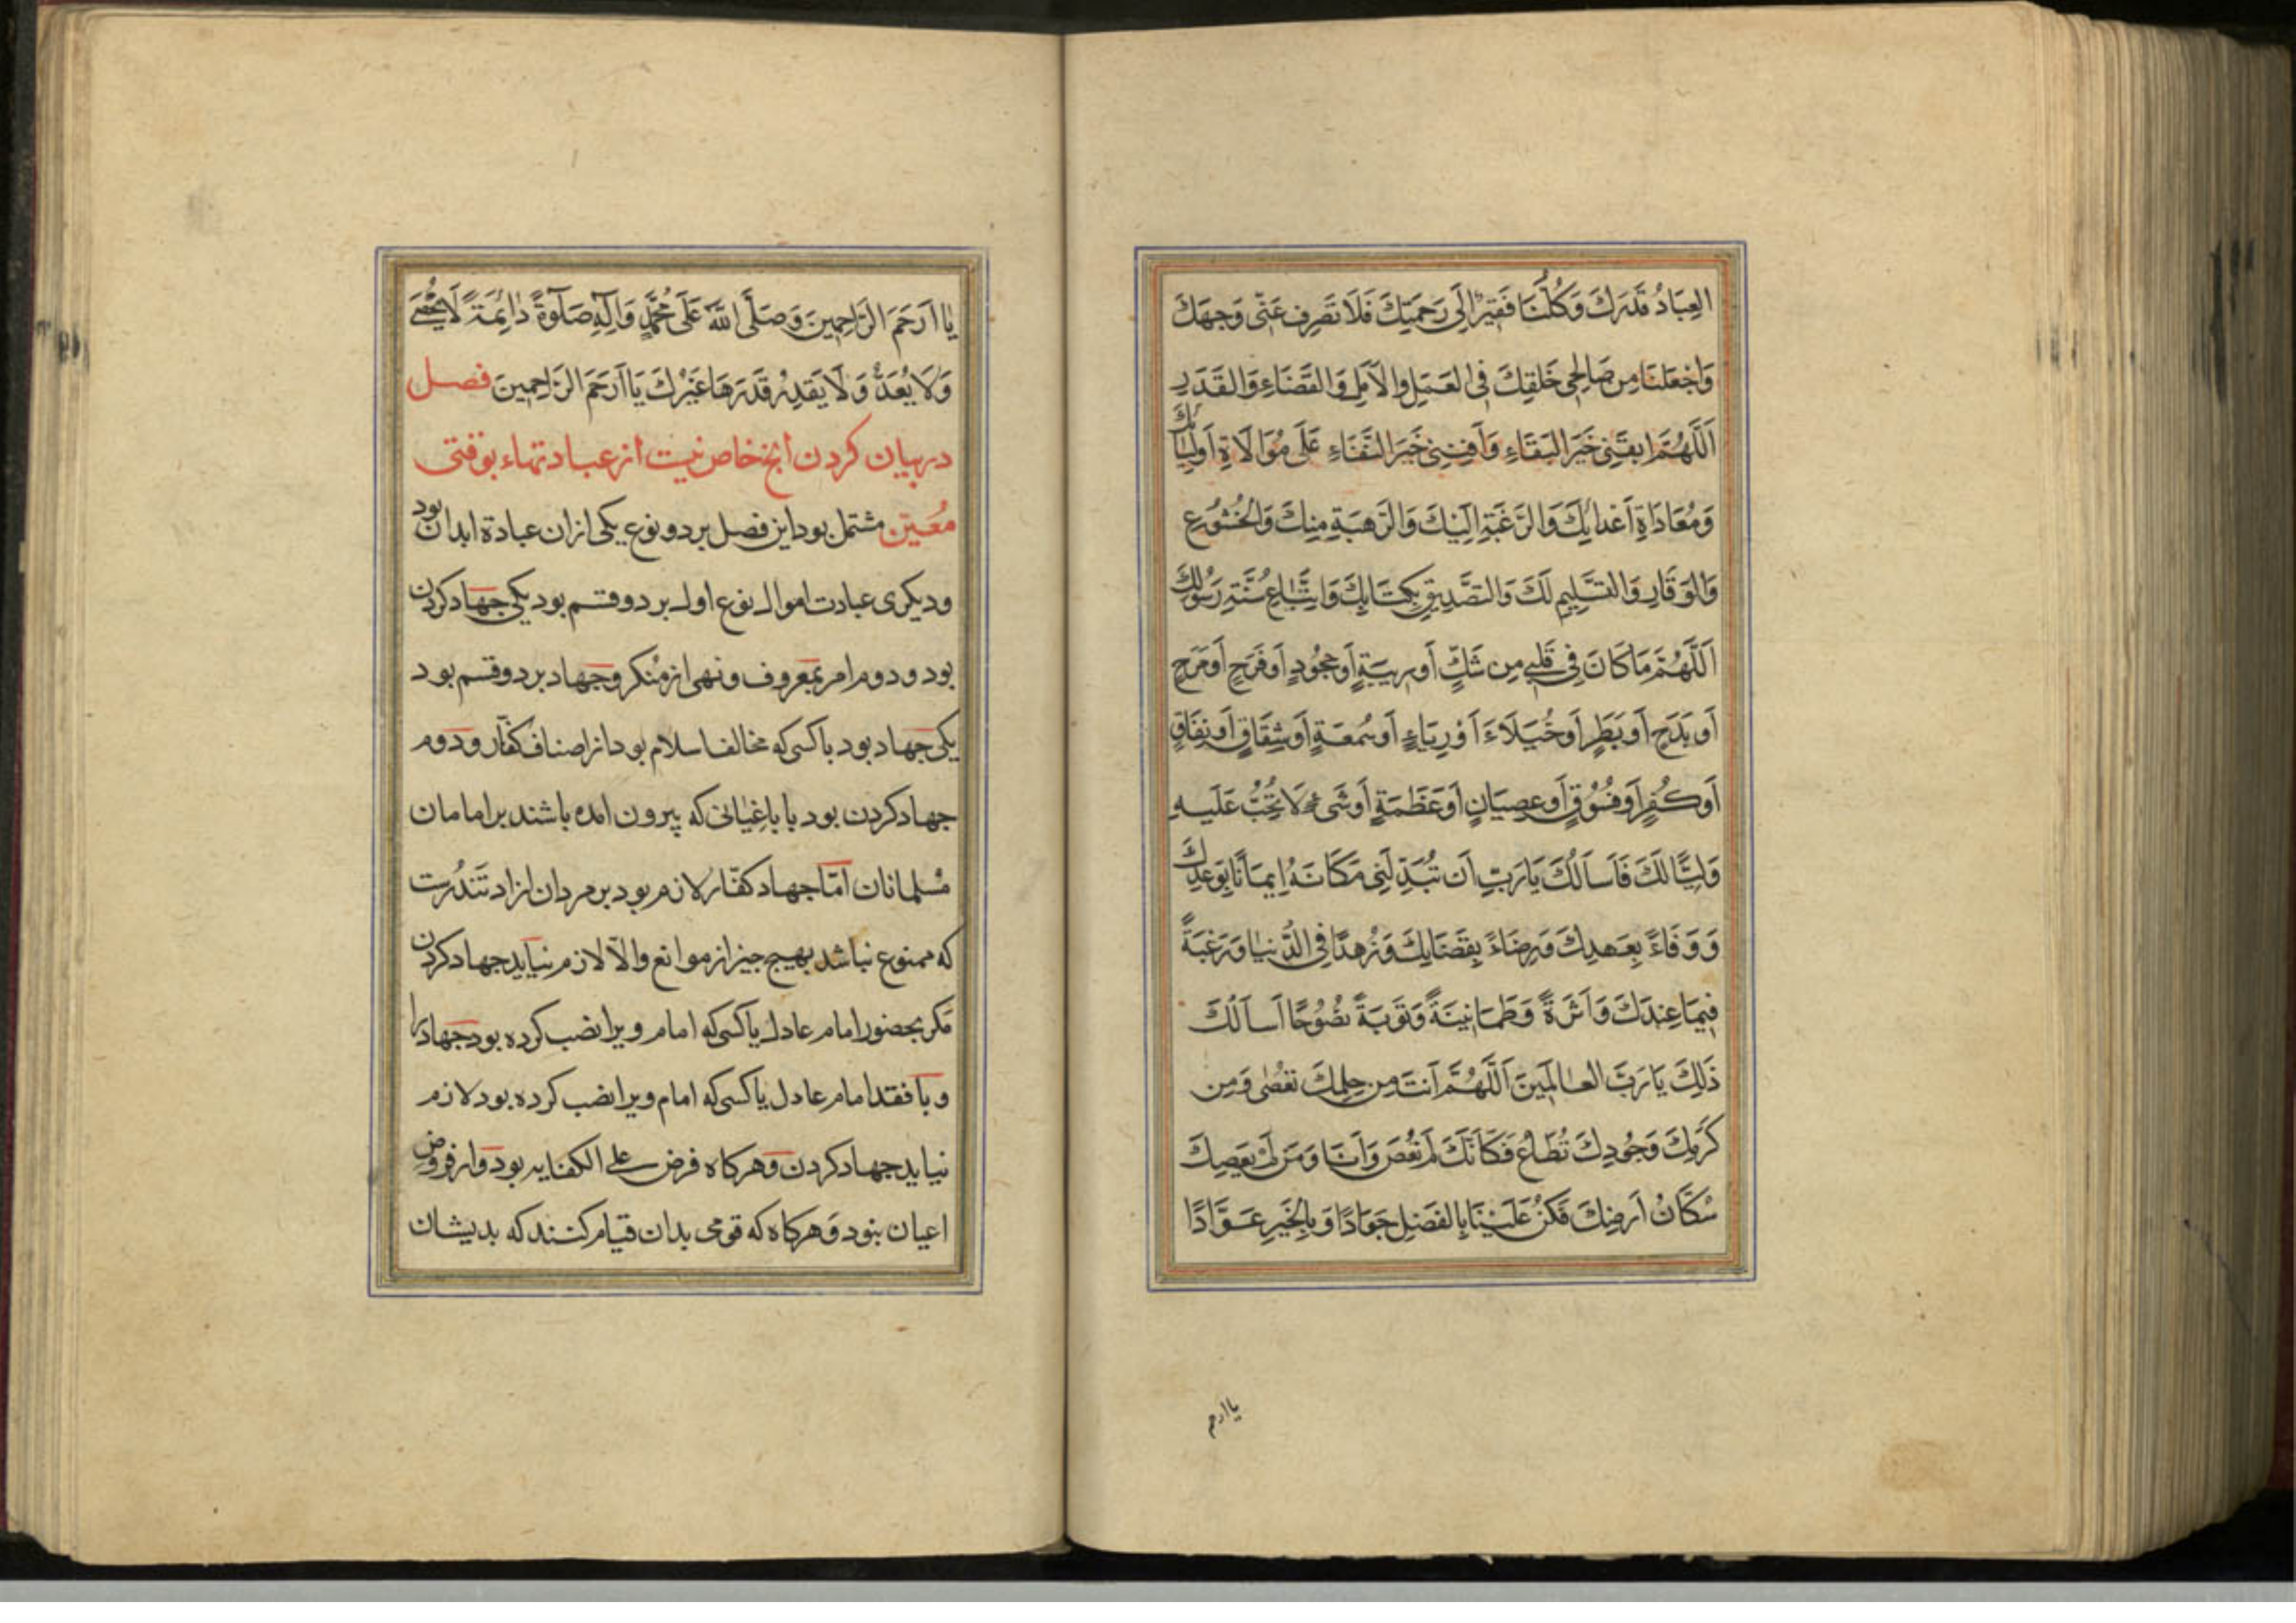 العِبَادُ قَدرَكَ وَكُلُّنَا فَقِيرٌ اِلَى رَحمَتِكَ فَلَا تَصرِف عَنّی وَجهَكَ
وَاجْعَلنَا مِن صَالِحِی خَلقِكَ فی العَمَلِ والاَمَلِ وَالقَضَاءِ وَالقَدَرِ
اَللَّهُمَّ ابقَنِی خَیرَ البَقَاءِ وَاَفنِنِی خَیرَ الفَنَاءِ عَلَی مُوَالَاةِ اَولِیَائِكَ
وَمُعَادَاةِ اَعْدَائِكَ وَالرَّغبَةِ اِلَیْكَ وَالرَّهبَةِ مِنكَ وَالخُشُوعِ
وَالوَقَارِ وَالتَّسلِیمِ لَكَ وَالتَّصدِیقِ بِكِتَابِكَ وَاتِّبَاعِ سُنَّةِ رَسُولِكَ
اَللَّهُمَّ مَا كَانَ فِی قَلبِی مِن شَكٍّ اَو رِیبَةٍ اَو جُحُودٍ اَو فَرَحٍ اَو مَرَحٍ
اَو بَذَحٍ اَو بَطَرٍ اَو خُیَلَاءَ اَوْ رِیَاءٍ اَو سُمعَةٍ اَو شِقَاقٍ اَو نِفَاقٍ
اَو كُفرٍ اَو فُسُوقٍ اَو عِصیَانٍ اَو عَظَمَةٍ اَو شَیءٍ لَا تُحِبُّ عَلَیهِ
وَلِیًّا لَكَ فَاَسَالُكَ یَا رَبِّ اَن تُبَدِّلَنِی مَكَانَهُ اِیمَانًا بِوَعدِكَ
وَوَفَاءً بِعَهدِكَ وَرِضَاءً بِقَضَایِكَ وَزُهدًا فِی الدُّنیَا وَرَغبَةً
فِیمَا عِندَكَ وَاَثَرَةً وَطَمَانِینَةً وَتَوبَةً نَصُوحًا اَسَالُكَ
ذَلِكَ یَا رَبَّ العَالَمِینَ اَللَّهُمَّ اَنتَ مِن حِلمِكَ تُعصٰی وَمِن
كَرَمِكَ وَجُودِكَ تُطَاعُ فَكَاَنَّكَ لَم تُعصَ وَاَنَا وَمَن لَم یَعصِكَ
سُكَّانُ اَرضِكَ فَكُن عَلَیْنَا بِالفَضلِ جَوَادًا وَبِالخَیرِ عَوَّادًا
یا ارحم
یَا اَرحَمَ الرَّاحِمِینَ وَصَلَّی اللّٰهُ عَلَی مُحَمَّدٍ وَاٰلِهِ صَلٰوةً دَائِمَةً لَا تُحْصَی
وَلَا یُعَدُّ وَلَا یَقدِرُ قَدرَهَا غَیْرُكَ یَا اَرحَمَ الرَّاحِمِینَ فصل
در بیان كردن انچ خاص نیست از عبادتهاء بوقتی
مُعَیّن مشتمل بود این فصل بر دو نوع یكی ازان عبادة ابدان بود
ودیكری عبادت اموال نوع اول بر دو قسم بود یكی جهاد كردن
بود ودوم امر بمعروف ونهی از مُنكر وجهاد بر دو قسم بود
یكی جهاد بود با كسی كه مخالف اسلام بود از اصناف كفّار ودوم
جهاد كردن بود با باغیانی كه بیرون امده باشند بر امامان
مُسلمانان امّا جهاد كفّار لازم بود بر مردان ازاد تندُرست
كه ممنوع نباشد بهیچ چیز از موانع والّا لازم نیاید جهاد كردن
مكر بحضور امام عادل یا كسی كه امام ویرا نصب كرده بود جهاد را
وبا فقد امام عادل یا كسی كه امام ویرا نصب كرده بود لازم
نیاید جهاد كردن وهركاه فرض علی الكفایه بود واز فروض
اعیان نبود وهركاه كه قومی بدان قیام كنند كه بدیشان